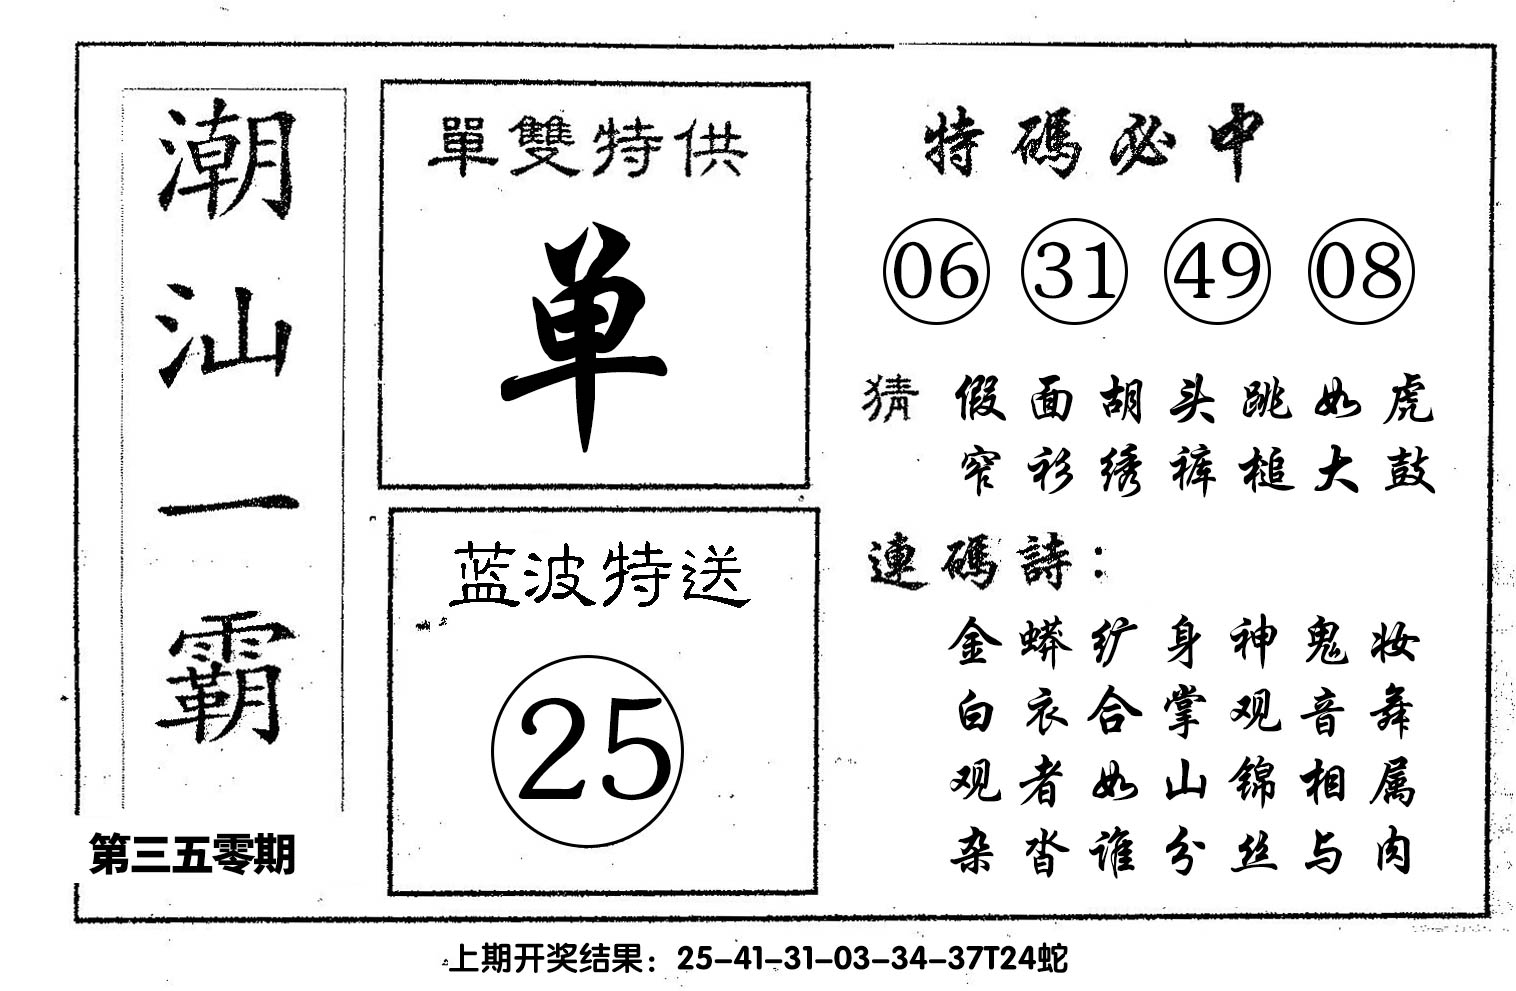 潮汕一霸
第三五零期
單雙特供
单
蓝波特送
25
特碼必中
06 31 49 08
猜 假面胡头跳如虎
窄衫绣裤槌大鼓
連碼詩：
金蟒纩身神鬼妆
白衣合掌观音舞
观者如山锦相属
杂沓谁分丝与肉
上期开奖结果：25-41-31-03-34-37T24蛇